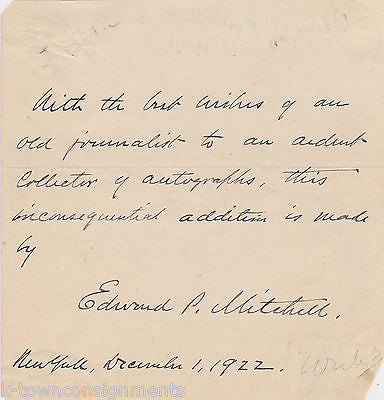 With the best wishes of an
old journalist to an ardent
collector of autographs, this
inconsequential addition is made
by
Edward P. Mitchell.
New York, December 1, 1922.
k-townconsignments